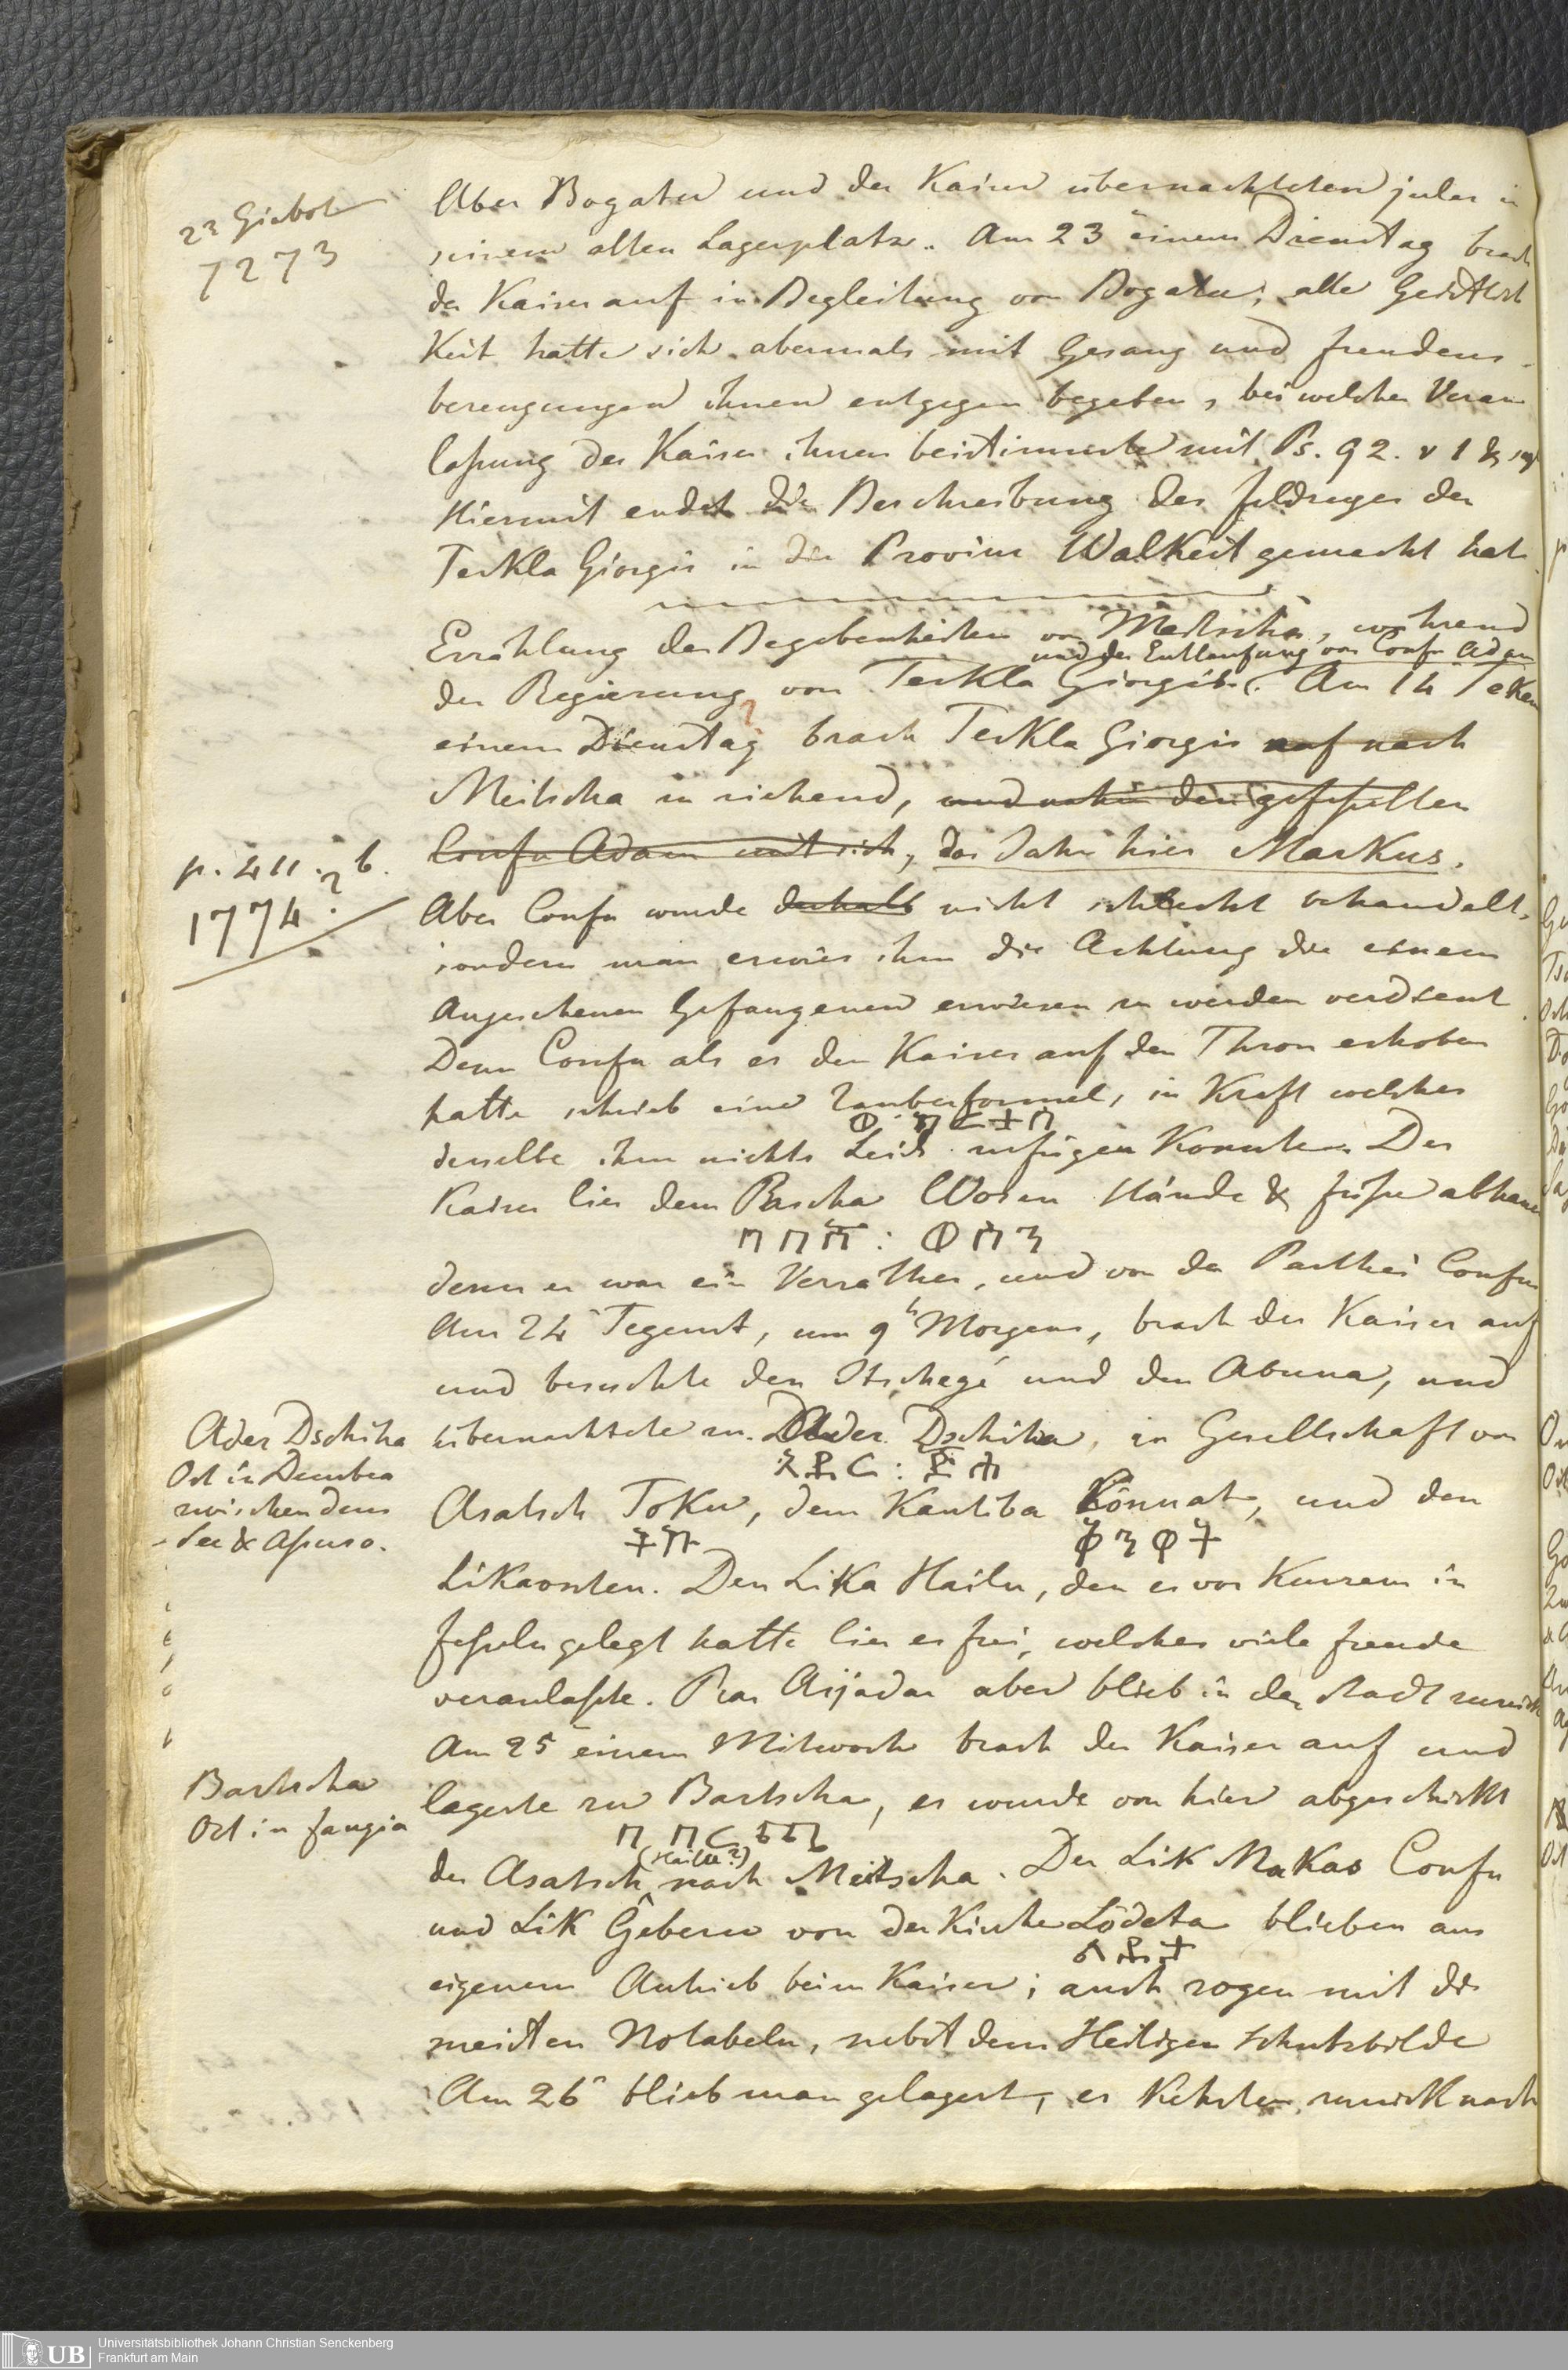 23 Giebot
7273
Aber Bogatu und der Kaiser übernachteten jeder in
seinem alten Lagerplatz. Am 23ᵗ einem Dienstag brach
der Kaiser auf in Begleitung von Bogatu; alle Geistlich
keit hatte sich abermals mit Gesang und freudens
bezeugungen ihnen entgegen begeben, bei welcher Veran
lassung der Kaiser ihnen beistimmte mit Ps. 92. v 1 &
Hiermit endet die Beschreibung des feldzuges den
Teckla Giorgis in der Provinz Walkeit gemacht hat.
Erzählung der Begebenheiten von Meitscha, während
und der Entlaufung von Confu Adam
der Regierung von Teckla Giorgis. Am 14 Teken
einem Dienstag brach Teckla Giorgis auf nach
Meitscha zu ziehend, und nahm den gefesselten
Confu Adam mit sich, das Jahr hies Markus.
p. 411. b.
1774?
Aber Confu wurde deshalb nicht schlecht behandelt,
sondern man erwies ihm die Achtung die einem
Angesehenen Gefangenen erwiesen zu werden verdient.
Denn Confu als er den Kaiser auf den Thron erhoben
hatte schrieb eine Zauberformel, in Kraft welcher
derselbe ihm nichts Leids zufügen konnte. Der
Kaiser lies dem Pascha Wosen Hände & füsse abhauen
denn er war ein Verräther, und von der Parthei Confus
Am 24ᵗ Tegemt, um 9ʰ Morgens, brach der Kaiser auf
und besuchte den Itschegé und den Abuna, und
übernachtete zu Ader Dschiha, in Gesellschaft von
አደር : ጂሃ
Ader Dschiha
Ort in Dembea
zwischen dem
See & Assaso.
Asatsch Toku, dem Kantiba Könuat, und den
Likaonten. Den Lika Hailu, den er vor Kurzem in
fesseln gelegt hatte lies er frei, welches viele freude
veranlasste. Ras Aijadar aber blieb in der Stadt zurück
Am 25ᵗ einem Mitwoch brach der Kaiser auf und
lagerte zu Bartscha, es wurde von hier abgeschickt
Bartscha
Ort in fangia
(Hailu?)
der Asatsch nach Meitscha. Der Lik Makas Confu
und Lik Geberu von der Kirche Lödeta blieben aus
ልደታ
eigenem Antrieb beim Kaiser; auch zogen mit die
meisten Notabeln, nebst dem Heiligen Schutzbilde
Am 26ᵗ blieb man gelagert, es kehrten zurück nach
UB
Universitätsbibliothek Johann Christian Senckenberg
Frankfurt am Main